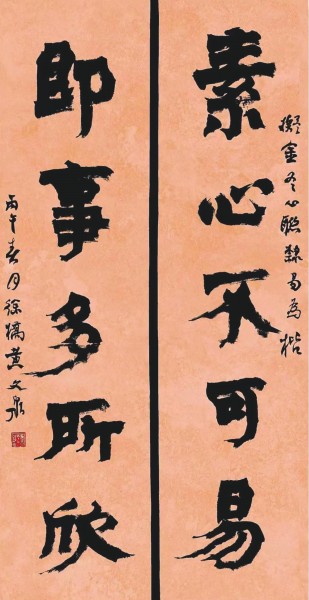 擬金冬心聯隸易為楷
素心不可易
即事多所欣
丙午春月徐黄文泉